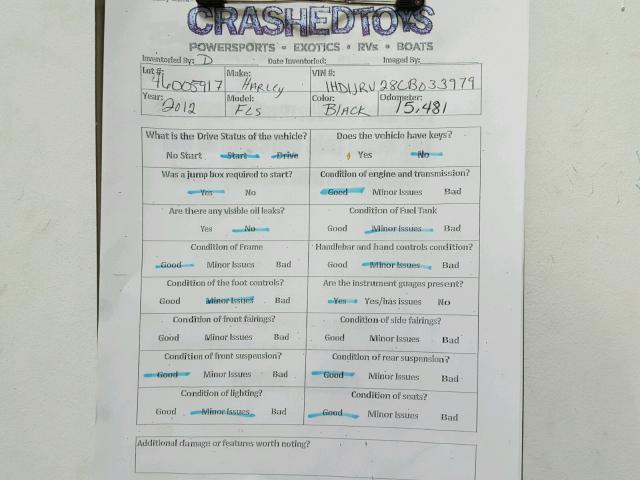 CRASHEDTOYS
POWERSPORTS • EXOTICS • RVs • BOATS
Inventoried By: D Date Inventoried: Imaged By:
Lot #: 46005917 Make: HARLEY VIN #: 1HD1JRV28CB033979
Year: 2012 Model: FLS Color: BLACK Odometer: 15,481
What is the Drive Status of the vehicle? Does the vehicle have keys?
No Start Start Drive Yes No
Was a jump box required to start? Condition of engine and transmission?
Yes No Good Minor Issues Bad
Are there any visible oil leaks? Condition of Fuel Tank
Yes No Good Minor Issues Bad
Condition of Frame Handlebar and hand controls condition?
Good Minor Issues Bad Good Minor Issues Bad
Condition of the foot controls? Are the instrument guages present?
Good Minor Issues Bad Yes Yes/has issues No
Condition of front fairings? Condition of side fairings?
Good Minor Issues Bad Good Minor Issues Bad
Condition of front suspension? Condition of rear suspension?
Good Minor Issues Bad Good Minor Issues Bad
Condition of lighting? Condition of seats?
Good Minor Issues Bad Good Minor Issues Bad
Additional damage or features worth noting?